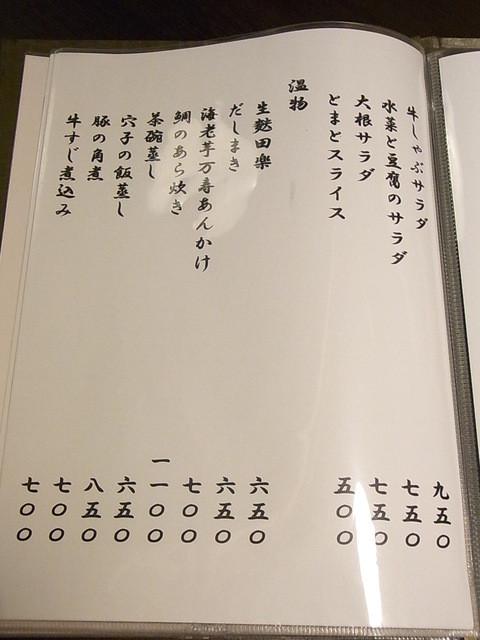 牛しゃぶサラダ 九五〇
水菜と豆腐のサラダ 七五〇
大根サラダ 七五〇
とまとスライス 五〇〇
温物
生麩田楽 六五〇
だしまき 六五〇
海老芋万寿あんかけ 七〇〇
鯛のあら炊き 一一〇〇
茶碗蒸し 六五〇
穴子の飯蒸し 八五〇
豚の角煮 七〇〇
牛すじ煮込み 七〇〇